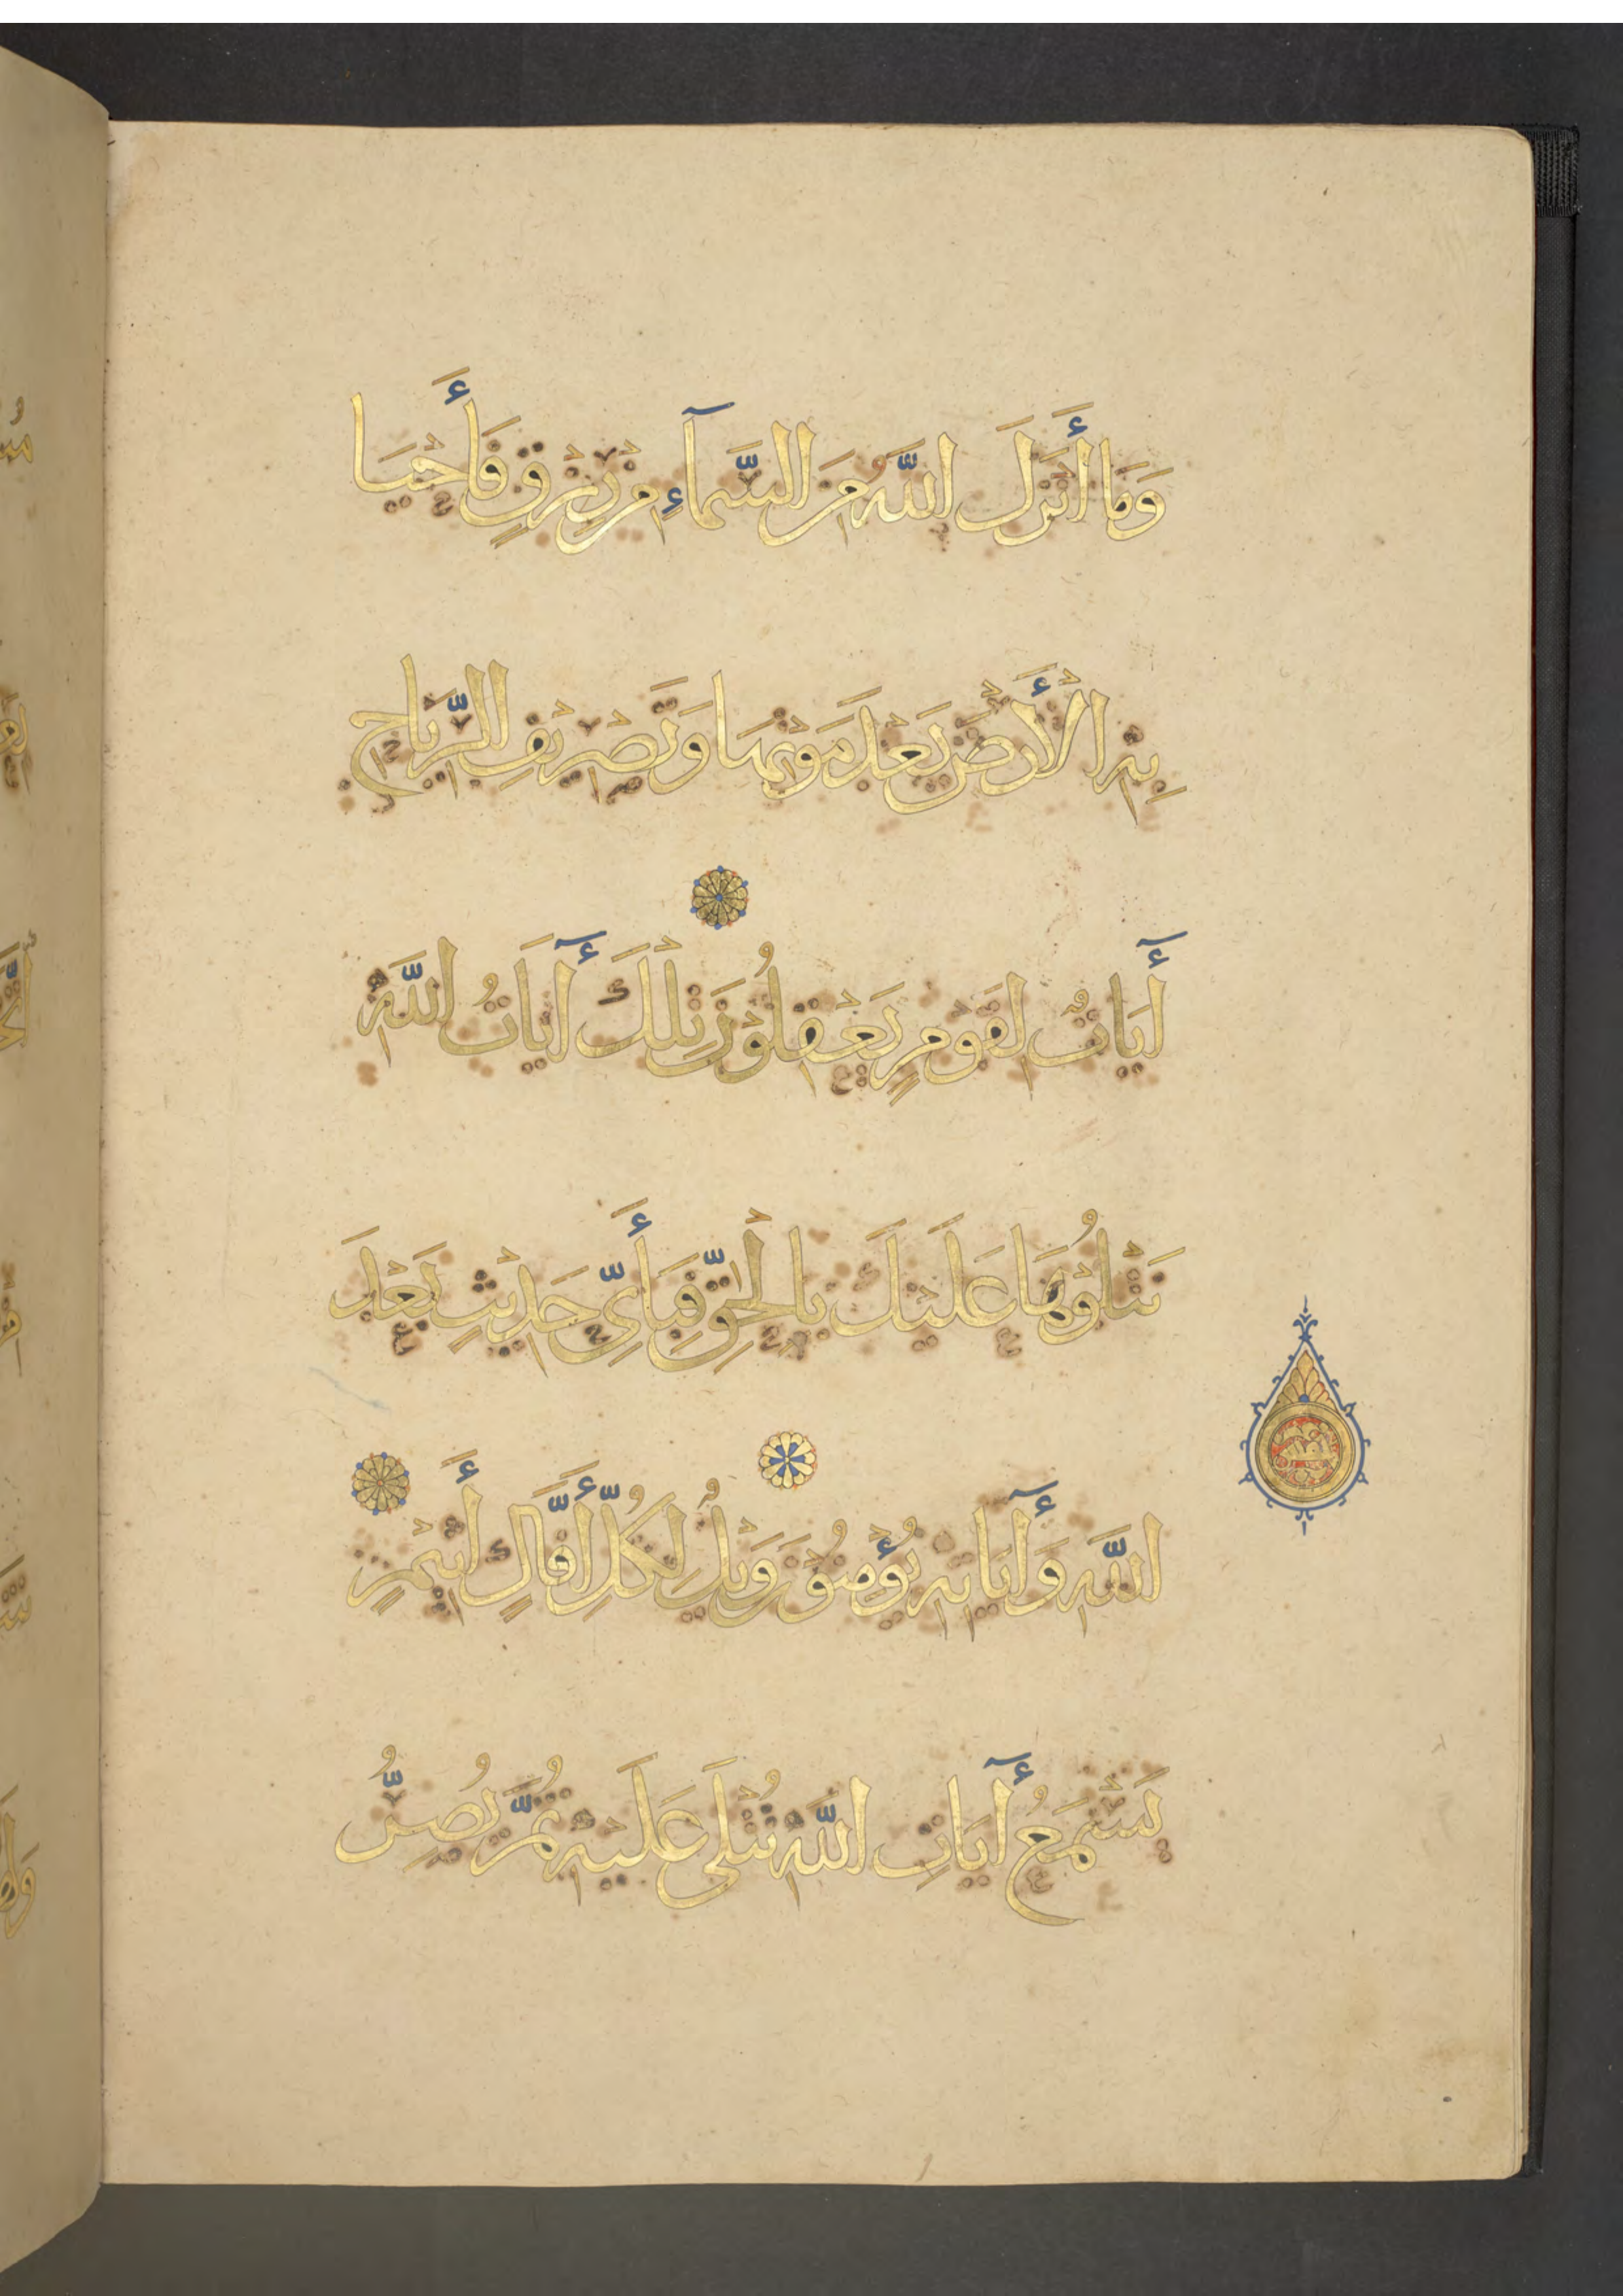 وَمَا أَنْزَلَ اللَّهُ مِنَ السَّمَآءِ مِنْ رِزْقٍ فَأَحْيَا
بِهِ الْأَرْضَ بَعْدَ مَوْتِهَا وَتَصْرِيفِ الرِّيَاحِ
أٓيَاتٌ لِقَوْمٍ يَعْقِلُوْنَ تِلْكَ أٓيَاتُ اللَّهِ
نَتْلُوْهَا عَلَيْكَ بِالْحَقِّ فَبِأَيِّ حَدِيْثٍ بَعْدَ
اللَّهِ وَأٓيَاتِهِ يُؤْمِنُوْنَ وَيْلٌ لِكُلِّ أَفَّالٍ أَثِيْمٍ
يَسْمَعُ أٓيَاتِ اللَّهِ تُتْلَى عَلَيْهِ ثُمَّ يُصِرُّ